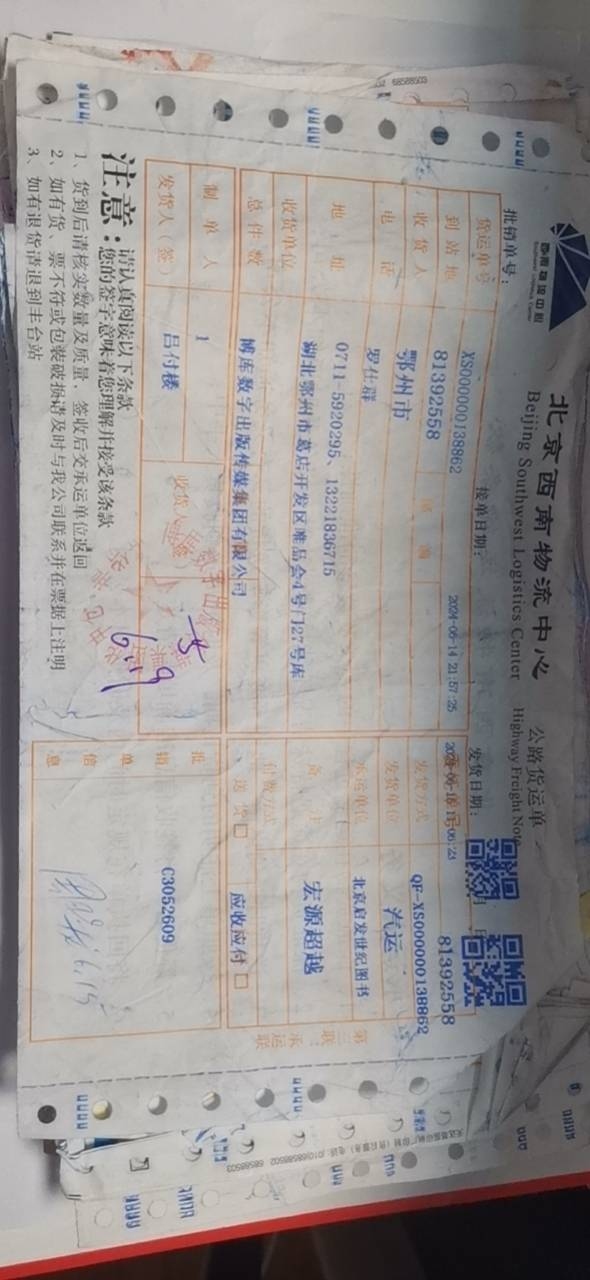 西南物流中心
Southwest Logistics Center
北京西南物流中心
Beijing Southwest Logistics Center
公路货运单
Highway Freight Note
批销单号：
接单日期：
发货日期：
月 日
XS000000138862
2024-06-14 21:57:25
81392558
货运单号
81392558
QF-XS000000138862
到站地
鄂州市
发货方式
汽运
收货人
罗仕群
发货单位
北京启发世纪图书
电 话
0711-5920295、13221836715
承运单位
宏源超越
地 址
湖北鄂州市葛店开发区唯品会4号门27号库
收货单位
博库数字出版传媒集团有限公司
付款方式
总件数
1
送货
应收应付
制单人
吕付楼
发货人（签）
收货人
批销单信息
C3052609
6.19
6.15
第三联：承运联
注意：
请认真阅读以下条款
您的签字意味着您理解并接受该条款
1、货到后请核实数量及质量，签收后交承运单位返回
2、如有货、票不符或包装破损请及时与我公司联系并在票据上注明
3、如有退货请退到丰台站